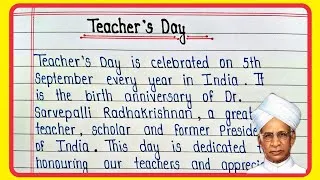 Teacher's Day
Teacher's Day is celebrated on 5th
September every year in India. It
is the birth anniversary of Dr.
Sarvepalli Radhakrishnan, a great
teacher, scholar and former Preside
of India. This day is dedicated
honouring our teachers and apprecia